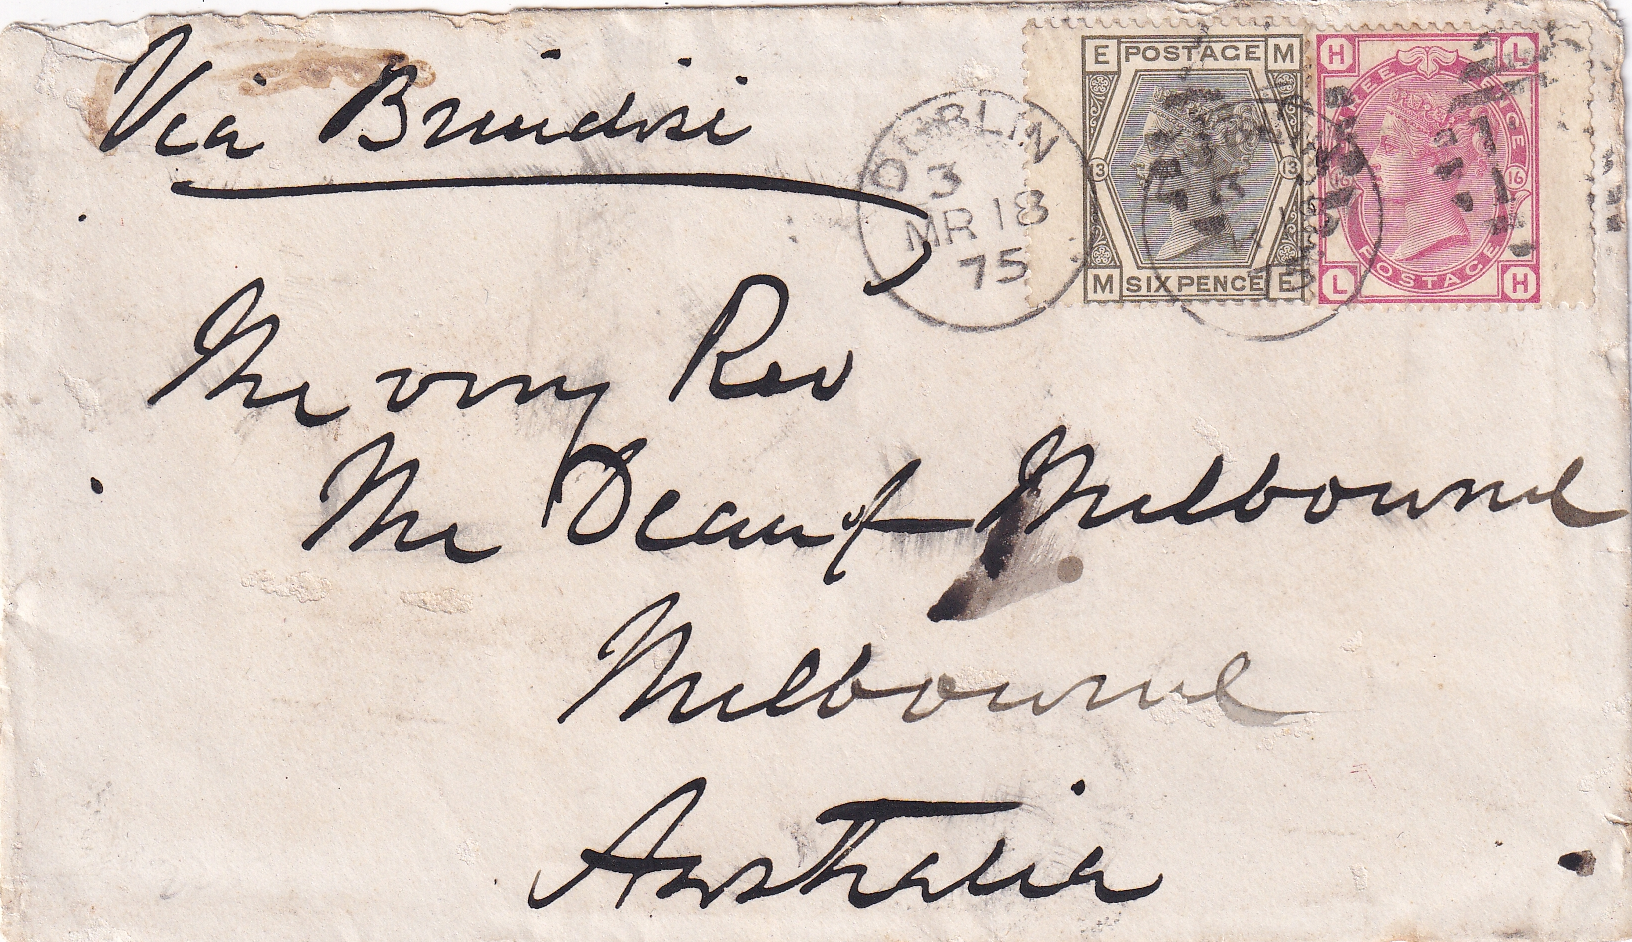 Via Brindisi
E POSTAGE M
13 13
M SIX PENCE E
H L
THREE PENCE
16 16
POSTAGE
L H
DUBLIN
3
MR 18
75
The very Rev
The Dean of Melbourne
Melbourne
Australia